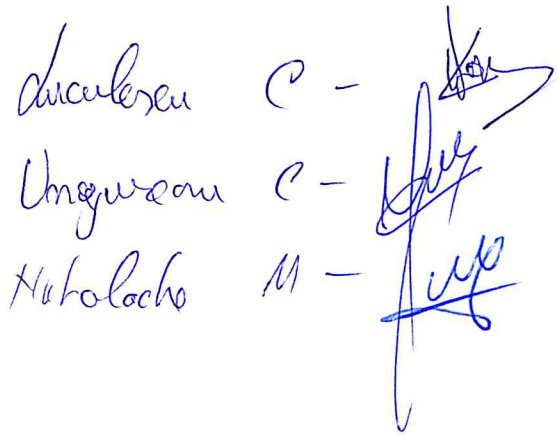 Luculescu C -
Ungureanu C -
Mihalache M -